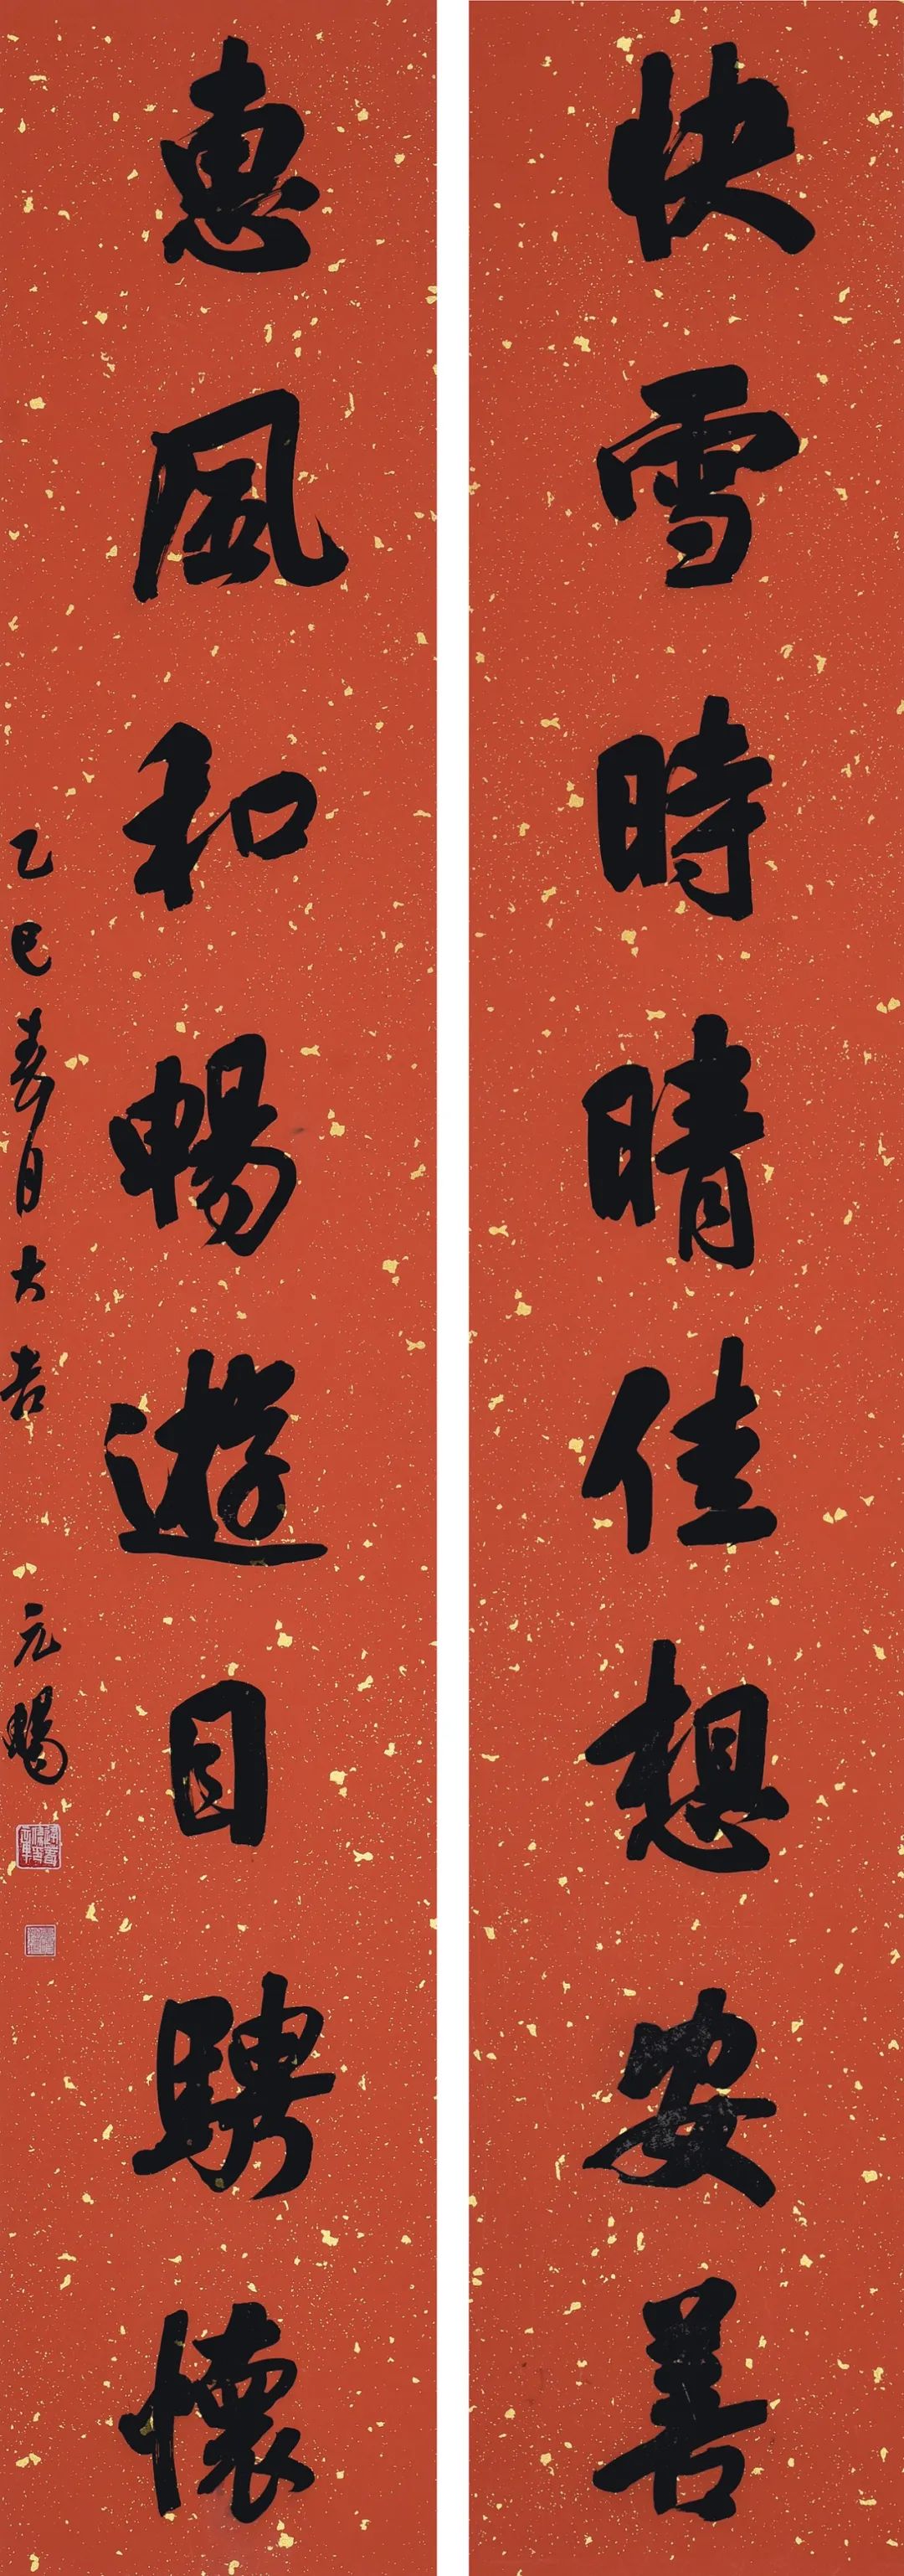 快雪時晴佳想安善
惠風和暢遊目騁懷
乙巳春月大吉
元賜